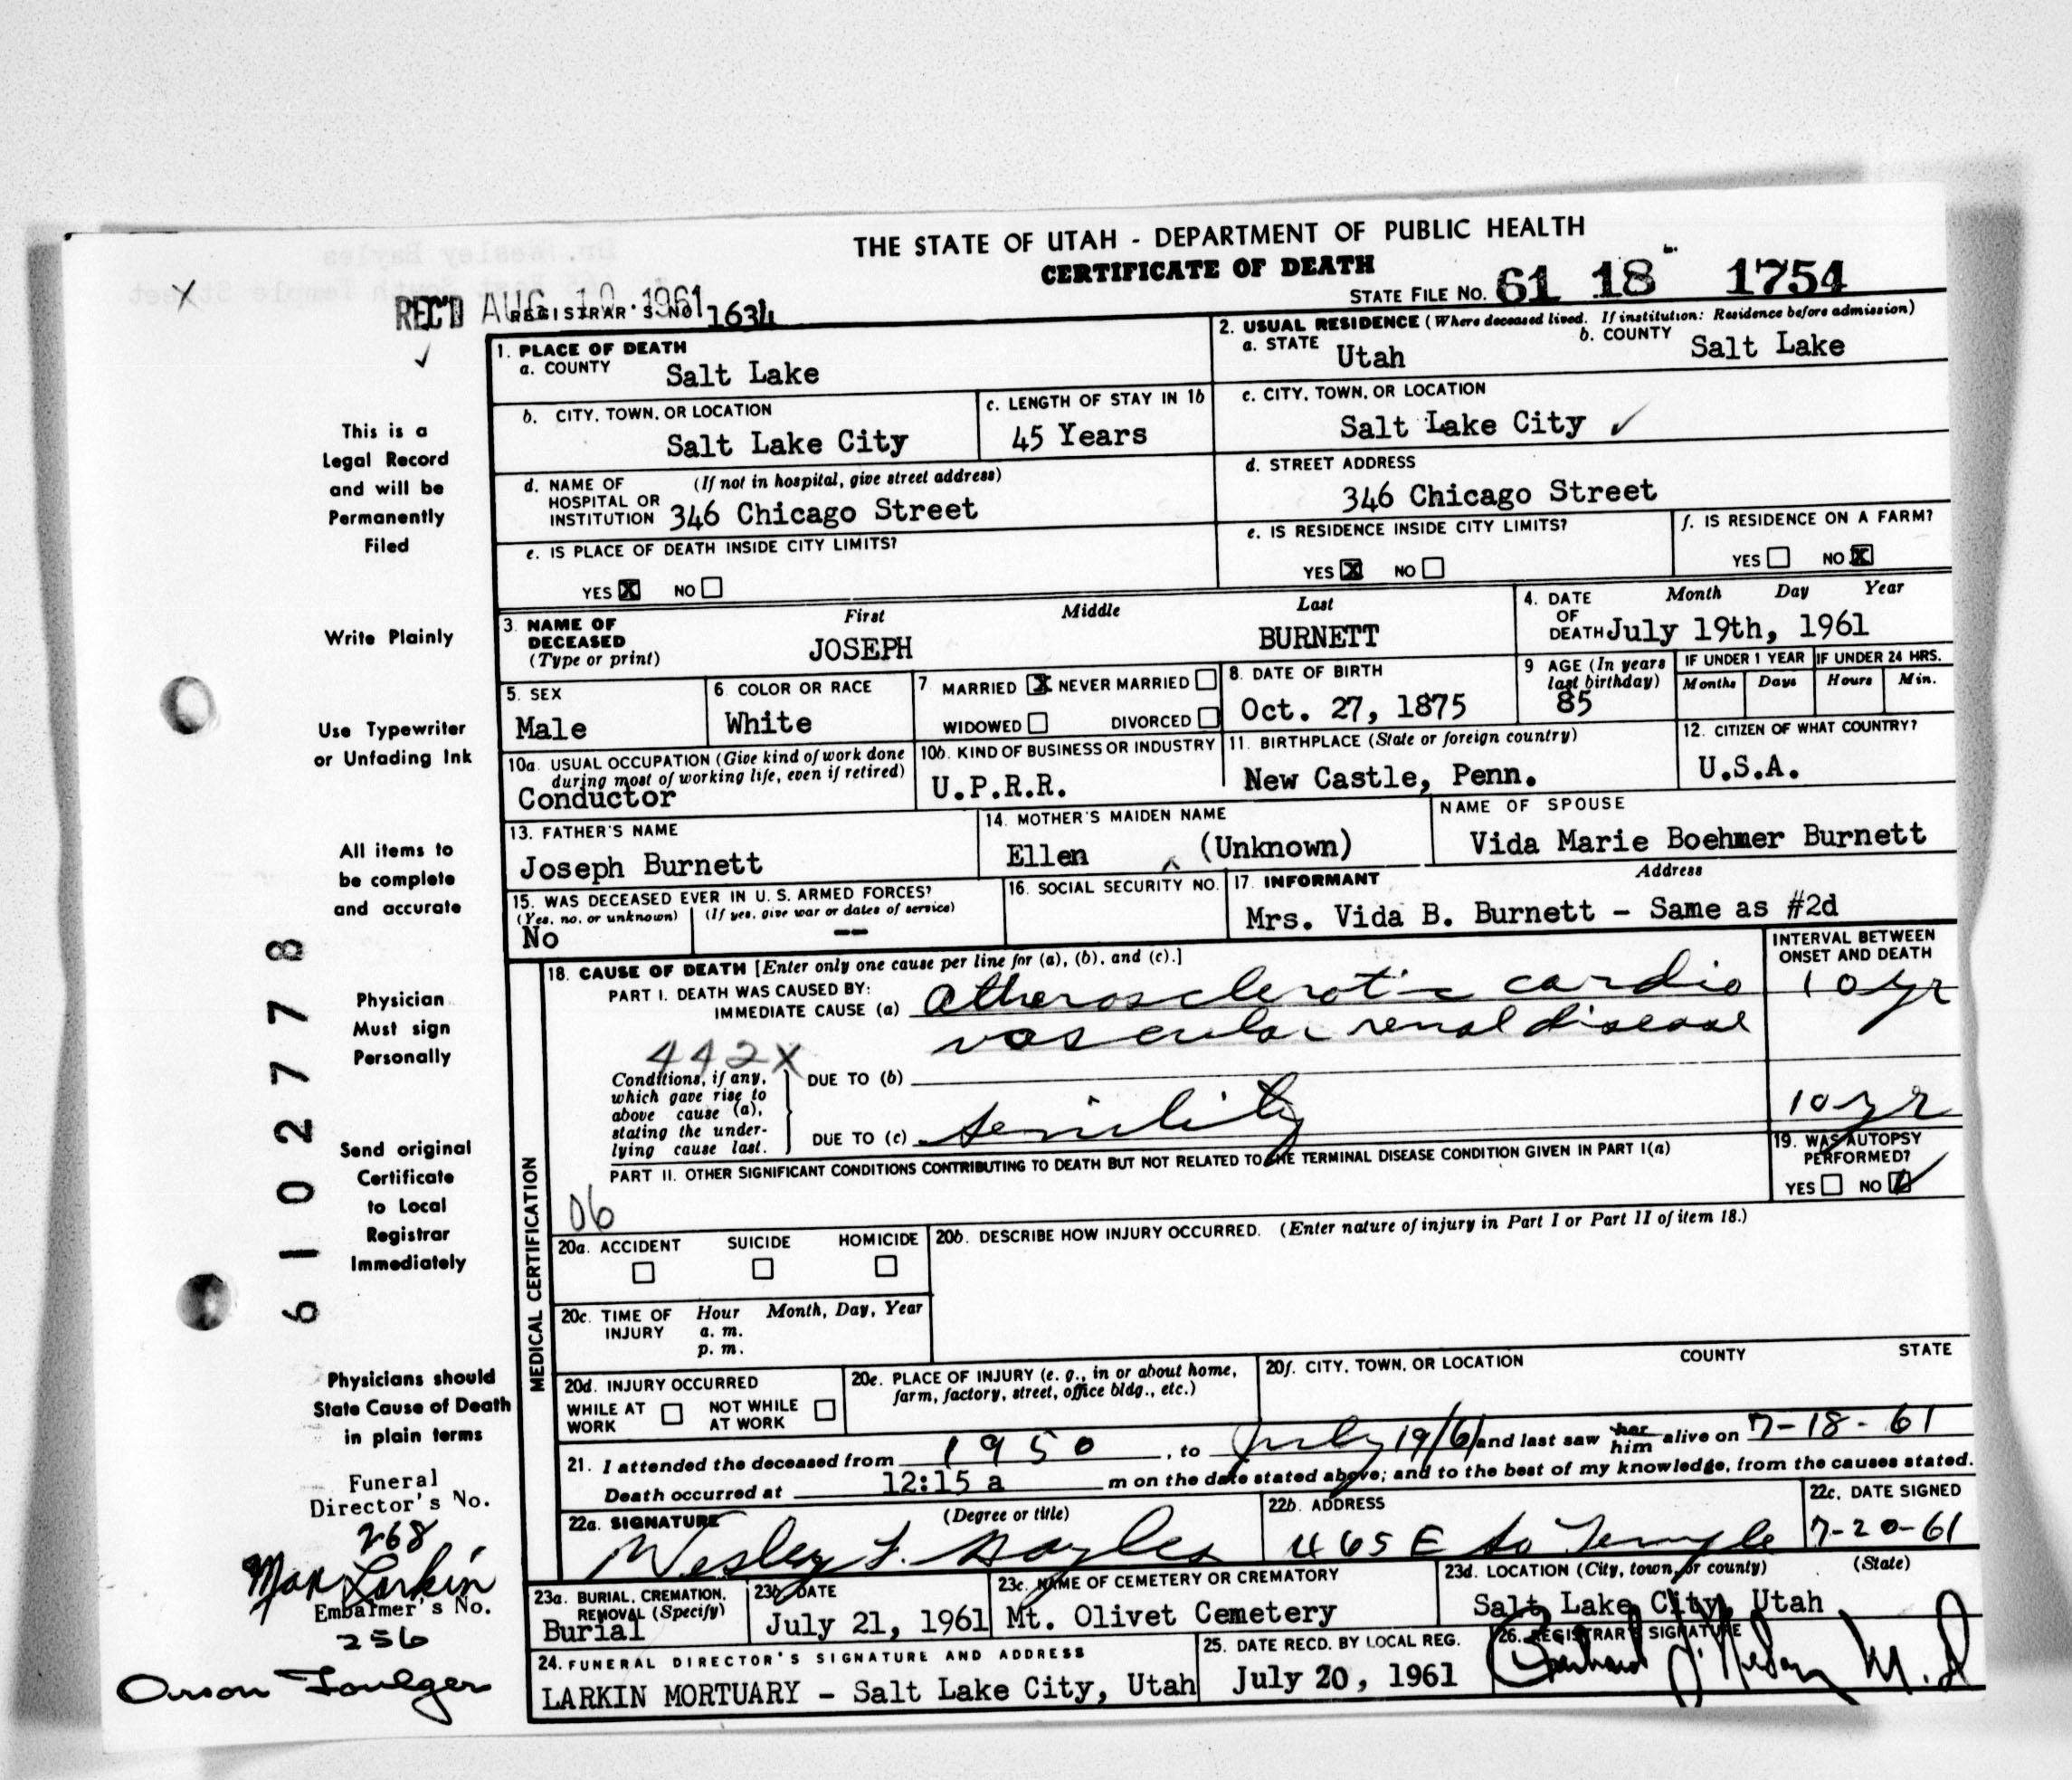 THE STATE OF UTAH - DEPARTMENT OF PUBLIC HEALTH
CERTIFICATE OF DEATH
STATE FILE NO. 61 18 1754
REC'D AUG 10 1961
REGISTRAR'S NO 1634
1. PLACE OF DEATH
a. COUNTY Salt Lake
2. USUAL RESIDENCE (Where deceased lived. If institution: Residence before admission)
a. STATE Utah b. COUNTY Salt Lake
b. CITY, TOWN, OR LOCATION
Salt Lake City
c. LENGTH OF STAY IN 1b
45 Years
c. CITY, TOWN, OR LOCATION
Salt Lake City ✓
d. NAME OF HOSPITAL OR INSTITUTION (If not in hospital, give street address)
346 Chicago Street
d. STREET ADDRESS
346 Chicago Street
e. IS PLACE OF DEATH INSIDE CITY LIMITS?
YES X NO
e. IS RESIDENCE INSIDE CITY LIMITS?
YES X NO
f. IS RESIDENCE ON A FARM?
YES NO X
3. NAME OF DECEASED (Type or print)
First Middle Last
JOSEPH BURNETT
4. DATE OF DEATH Month Day Year
July 19th, 1961
5. SEX
Male
6. COLOR OR RACE
White
7. MARRIED X NEVER MARRIED
WIDOWED DIVORCED
8. DATE OF BIRTH
Oct. 27, 1875
9 AGE (In years last birthday)
85
IF UNDER 1 YEAR IF UNDER 24 HRS.
Months Days Hours Min.
10a. USUAL OCCUPATION (Give kind of work done during most of working life, even if retired)
Conductor
10b. KIND OF BUSINESS OR INDUSTRY
U.P.R.R.
11. BIRTHPLACE (State or foreign country)
New Castle, Penn.
12. CITIZEN OF WHAT COUNTRY?
U.S.A.
13. FATHER'S NAME
Joseph Burnett
14. MOTHER'S MAIDEN NAME
Ellen (Unknown)
NAME OF SPOUSE
Vida Marie Boehmer Burnett
15. WAS DECEASED EVER IN U. S. ARMED FORCES?
(Yes, no, or unknown) (If yes, give war or dates of service)
No --
16. SOCIAL SECURITY NO.
17. INFORMANT Address
Mrs. Vida B. Burnett - Same as #2d
MEDICAL CERTIFICATION
18. CAUSE OF DEATH [Enter only one cause per line for (a), (b), and (c).]
INTERVAL BETWEEN ONSET AND DEATH
PART I. DEATH WAS CAUSED BY:
IMMEDIATE CAUSE (a) atherosclerotic cardio 10 yr
vascular renal disease
442X
Conditions, if any, which gave rise to above cause (a), stating the underlying cause last.
DUE TO (b)
DUE TO (c) senility 10 yr
PART II. OTHER SIGNIFICANT CONDITIONS CONTRIBUTING TO DEATH BUT NOT RELATED TO THE TERMINAL DISEASE CONDITION GIVEN IN PART I(a)
06
19. WAS AUTOPSY PERFORMED?
YES NO ✓
20a. ACCIDENT SUICIDE HOMICIDE
20b. DESCRIBE HOW INJURY OCCURRED. (Enter nature of injury in Part I or Part II of item 18.)
20c. TIME OF INJURY Hour Month, Day, Year
a. m.
p. m.
20d. INJURY OCCURRED
WHILE AT WORK NOT WHILE AT WORK
20e. PLACE OF INJURY (e. g., in or about home, farm, factory, street, office bldg., etc.)
20f. CITY, TOWN, OR LOCATION COUNTY STATE
21. I attended the deceased from 1950, to July 19/61 and last saw her him alive on 7-18-61
Death occurred at 12:15 a m on the date stated above; and to the best of my knowledge, from the causes stated.
22a. SIGNATURE (Degree or title)
Wesley F. Bayles
22b. ADDRESS
465 E So Temple
22c. DATE SIGNED
7-20-61
23a. BURIAL, CREMATION, REMOVAL (Specify)
Burial
23b. DATE
July 21, 1961
23c. NAME OF CEMETERY OR CREMATORY
Mt. Olivet Cemetery
23d. LOCATION (City, town, or county) (State)
Salt Lake City, Utah
24. FUNERAL DIRECTOR'S SIGNATURE AND ADDRESS
LARKIN MORTUARY - Salt Lake City, Utah
25. DATE RECD. BY LOCAL REG.
July 20, 1961
26. REGISTRAR'S SIGNATURE
M.D
X
✓
This is a
Legal Record
and will be
Permanently
Filed
Write Plainly
Use Typewriter
or Unfading Ink
All items to
be complete
and accurate
Physician
Must sign
Personally
Send original
Certificate
to Local
Registrar
Immediately
Physicians should
State Cause of Death
in plain terms
61027778
Funeral
Director's No.
268
Max Larkin
Embalmer's No.
256
Orson Foulger